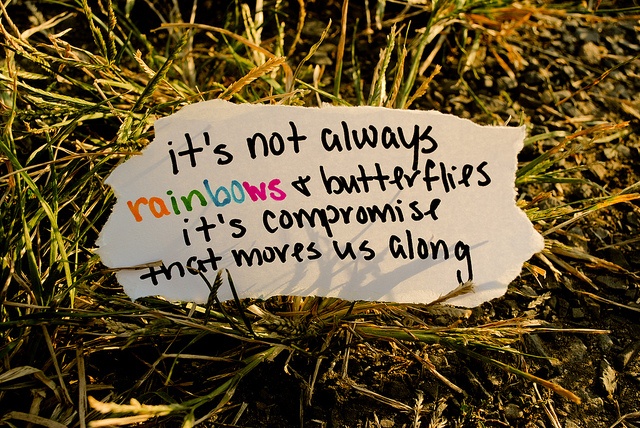 it's not always
rainbows & butterflies
it's compromise
that moves us along